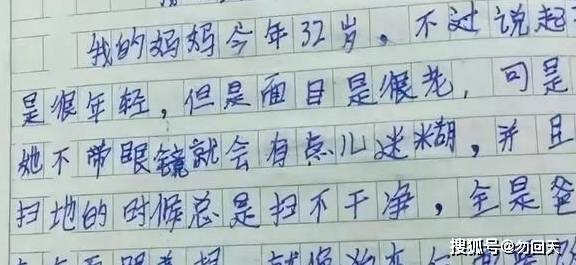 我的妈妈今年32岁，不过说起
是很年轻，但是面目是很老，可是
她不带眼镜就会有点儿迷糊，并且
扫地的时候总是扫不干净，全是爸
搜狐号@勿回天